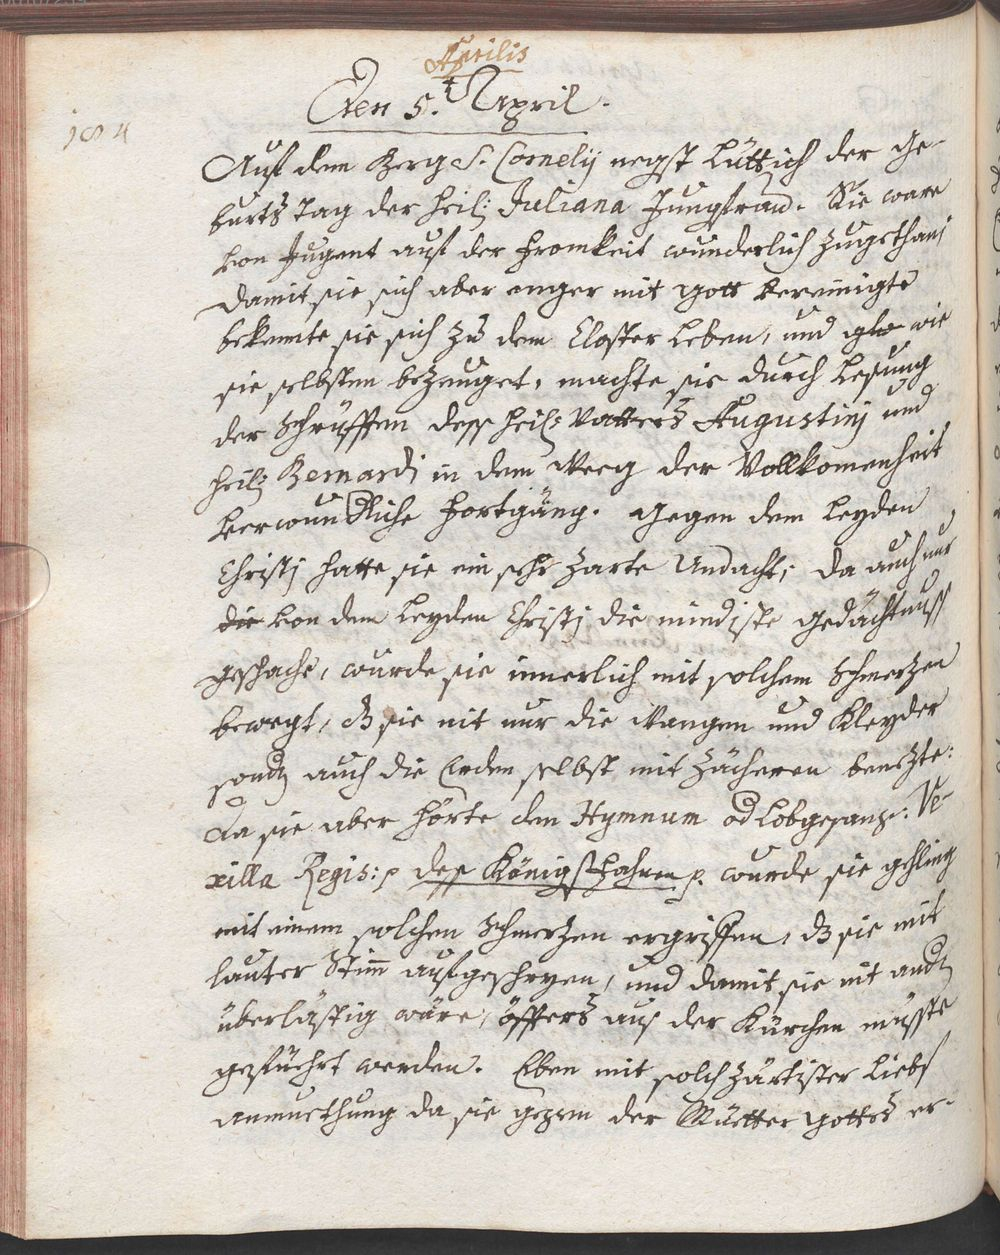 Aprilis
184
Den 5.t April.
Auf dem Berg S. Cornelij negst Lüttich der Ge-
burts Tag der heil: Juliana Jungfrau. Sie ware
von Jugent auf der Fromkeit wunderlich zugethan;
damit sie sich aber enger mit Gott vereinigte
bekente sie sich zu dem Closter Leben, und wie
sie selbsten bezeuget, machte sie durch Lesung
der Schrüfften dess heil: Vatters Augustini und
heil: Bernardi in dem Weeg der Vollkomenheit
verwundliche Fortgäng. Gegen dem Leyden
Christi hatte sie ein sehr zarte Andacht; da auch nur
die von dem Leyden Christi die mindiste Gedächtnuss
geschache, wurde sie innerlich mit solchem Schmertzen
bewegt, dz sie nit nur die Wangen und Kleyder
sondern auch die Erden selbst mit Zächeren benezte:
da sie aber hörte den Hymnum od Lobgesang: Ve-
xilla Regis: p dess Königs Fahnen p. wurde sie gehling
mit einem solchen Schmertzen ergriffen, dz sie mit
lauter Stim aufgeschryen, und damit sie nit andern
überlästig wäre, öffters aus der Kürchen müsste
geführt werden. Eben mit solch zärtister Liebs
anmuethung da sie gegen der Muetter Gottes er-